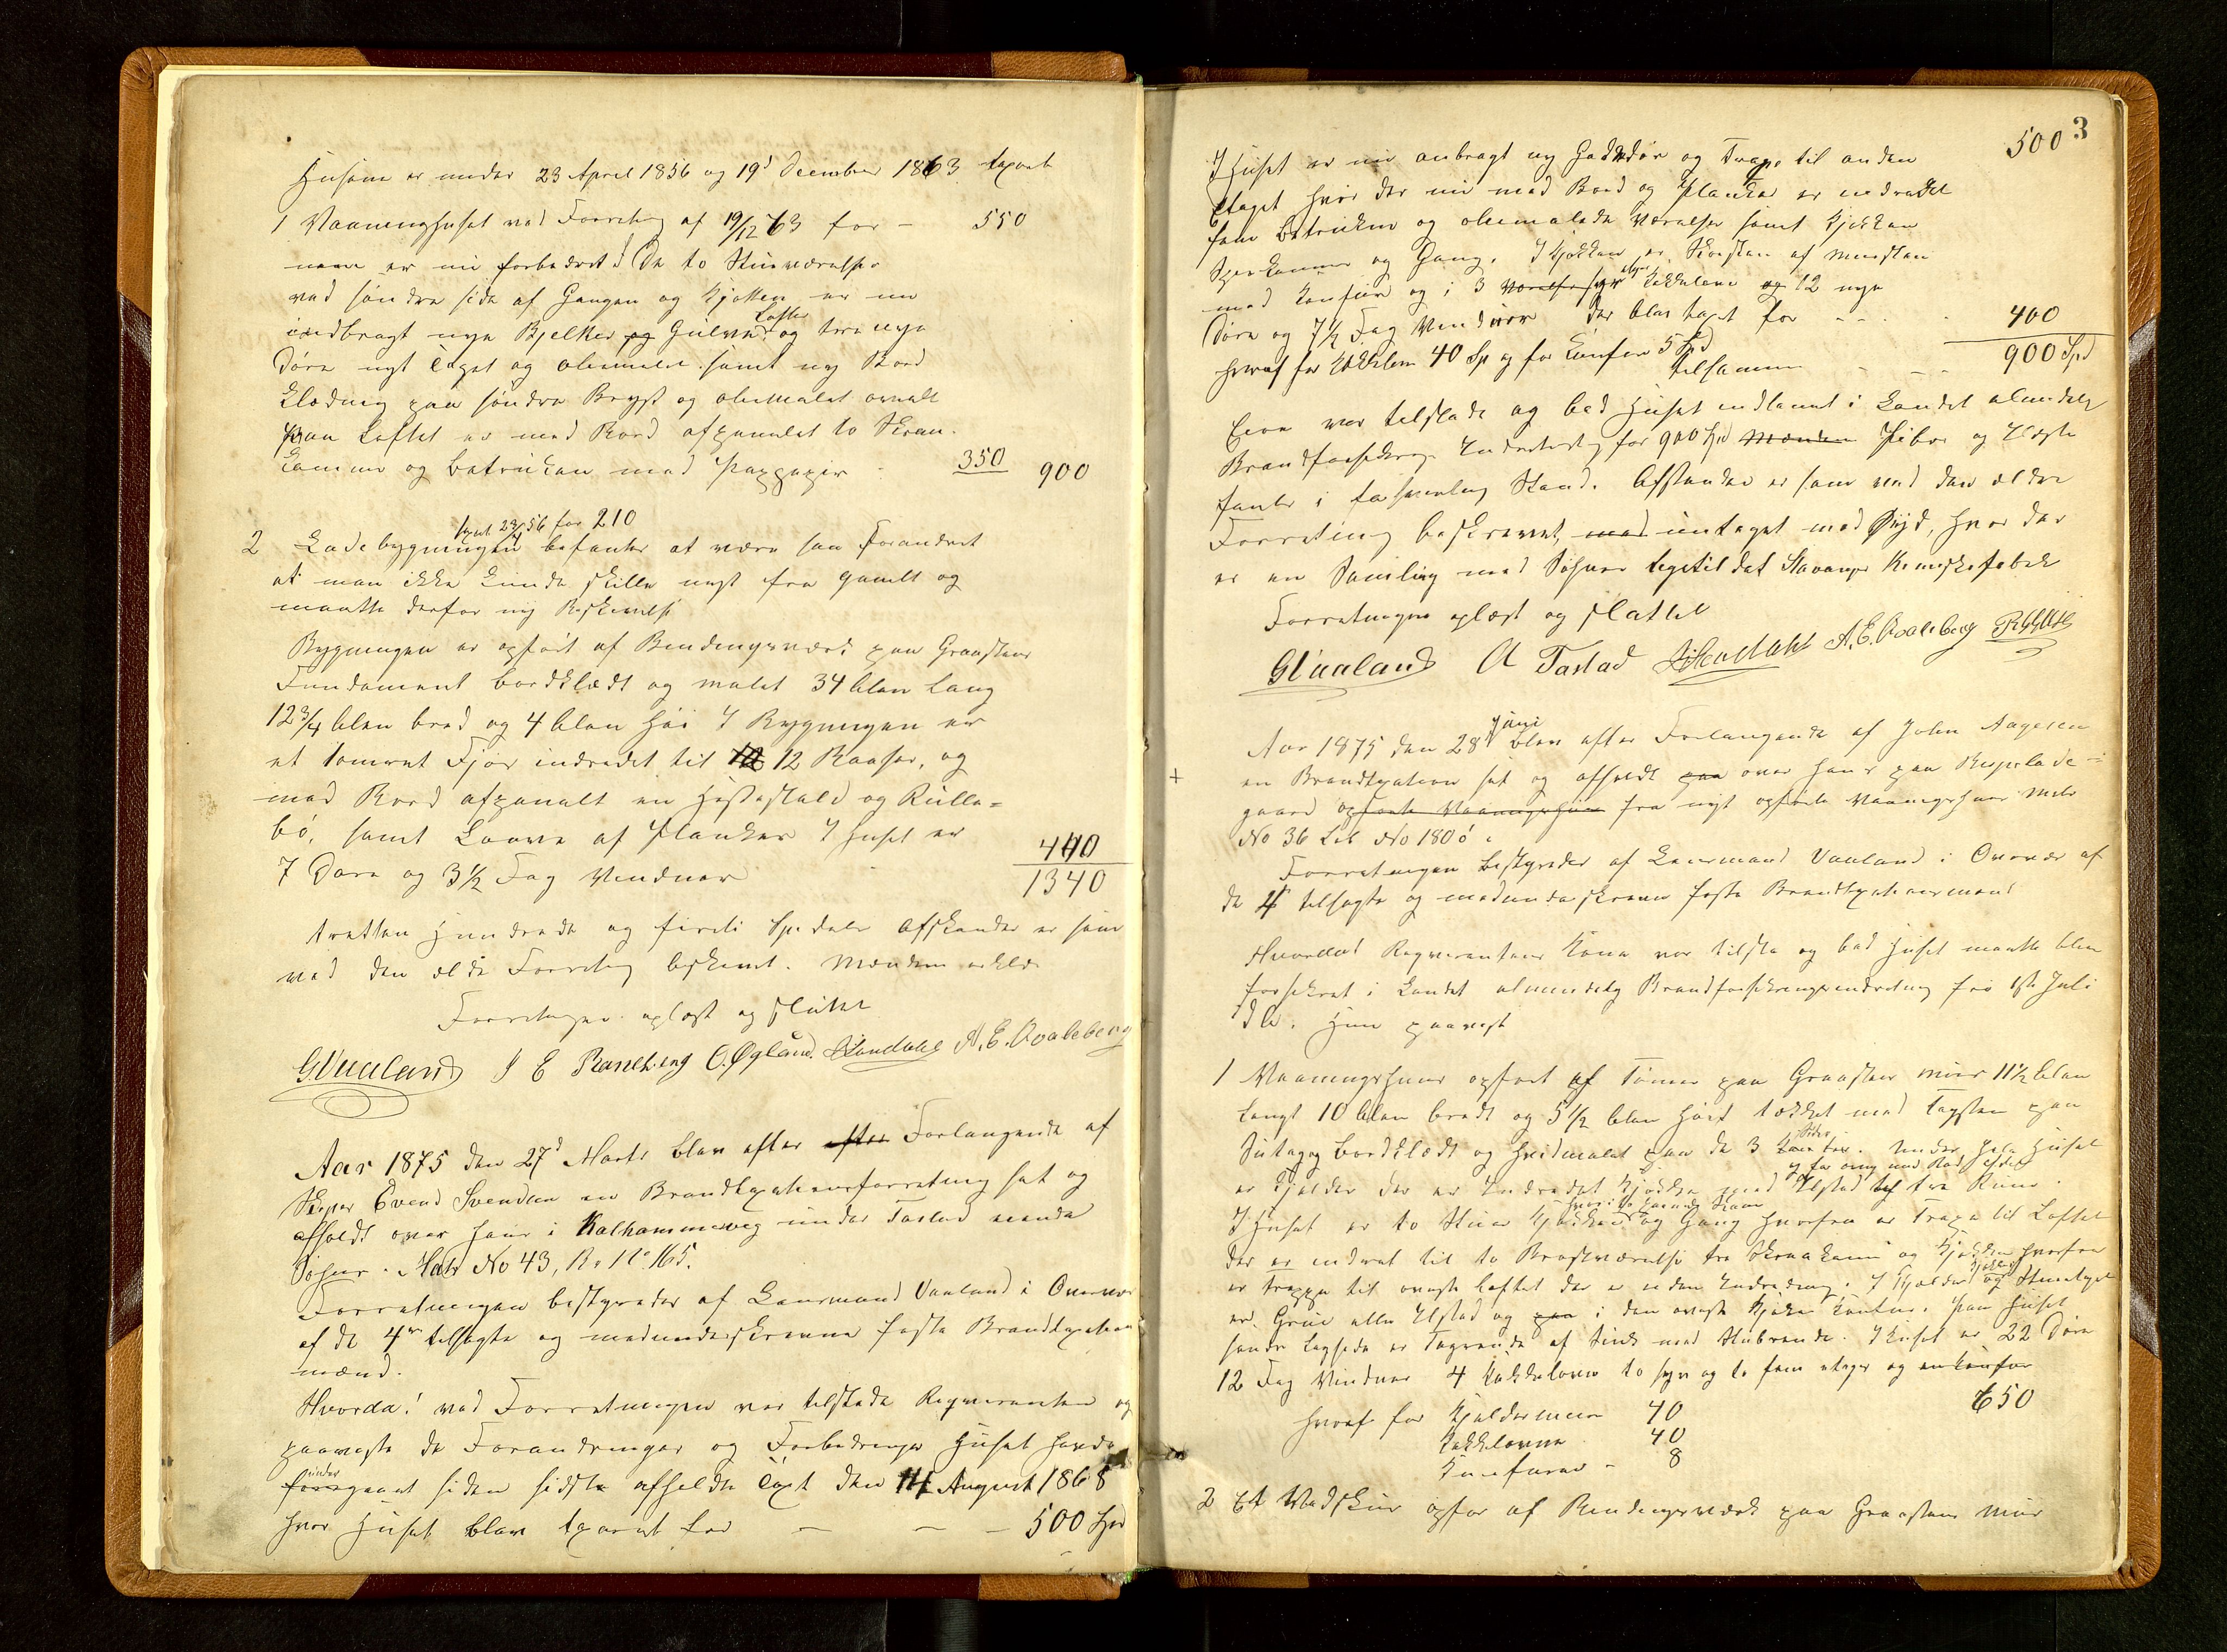 Husene er under 23 April 1856 og 19d December 1863 taxeret
1 Vaaningshuset ved Forretng af 19/12 63 for - 550
men er nu forbedret. De to Stueværelser
ved søndre side af Gangen og Kjøkken er nu
indbragt nye Bjelker og Gulve Lofter og tre nye
Døre nyt og oliemalet samt ny Bord
Klædning paa søndre Bryst og oliemalet overalt
Paa Loftet er med Bord afpanelet to Skraa-
kammer og betrukken med Pappapir 350 900
2 Ladebygningen taxt 23/4 56 for 210 befantes at være saa forandret
at man ikke kunde skille nyt fra gamlt og
maatte derfor ny Beskrivelse
Bygningen er opført af Bindingsværk paa Graasteens
Fundament bordklædt og malet 34 Alen lang
12 3/4 Alen bred og 4 Alen høi I Bygningen er
et tømret Fjøs indredet til 12 Baaser, og
med Bord afpanelt en Hestestald og Rulle-
bo, samt Laave af Planker I huset er
7 Døre og 3 1/2 Fag Vinduer 440
1340
tretten Hundrede og firti Spdaler Afstanden er som
ved den ældre Forretng beskrevet. Mændene erklær
Forretngen oplæst og sluttet
GVaaland J E O. Øgland. A. E. Aaleberg
Aar 1875 den 27d Marts blev efter efter Forlangende af
Skiper Svend Svendsen en Brandtaxtationsforretning sat og
afholdt over Hans i Kalhammerveg under Tastad eiende
Søhus. Matr No 43, Br No 165.
Forretningen bestyredes af Lensmand Vaaland i Overvær
af de 4re tilsagte og medunderskrevne faste Brandtaxations
mænd.
Hvorda! ved Forretningen var tilstede Reqverenten og
paaviste de Forandringer og Forbedringer Huset havde
undergaaet siden sidste afholdte Taxt den 14 August 1868
hvor Huset blev taxeret for - - - 500 Spd
3
500
I Huset er nu anbragt ny Gadedør og Trappe til anden
Etage hvor der nu med Bord og Planker er indredet
fem betrukne og oliemalede Værelser samt Kjøkken
Spiskammer og Gang. I Kjøkken er Skorsten af Mursten
med Komfur og i 3 Værelser Kakkelovne og 12 nye
Døre og 7 1/2 Fag Vinduer Der blev taxt for - - . 400
hvoraf for Kakkelovn 40 Sp og for Komfur 5 Spd
tilsammen - - - 900 Spd
Eieren var tilstede og bad Huset indlemmet i Landet almindelige
Brandforsikrings Indretning for 900 Spd Mænden Piber og Ildsted
fantes i forsvarlig Stand. Afstanden er som ved den ældre
Forretning beskrevet, med undtaget mod Syd, hvor der
er en Samling med Søhuse Stavanger Kemiskefabrik
Forretningen oplæst og sluttet
GVaaland A Tastad A. E. Aaleberg
Aar 1875 den 28 Juni blev efter Forlangende af John Aagesen
en Brandtaxation sat og afholdt paa over Hans paa Bispelade-
gaard opførte Vaaningshuus fra nyt opførte Vaaningshuus Matr
No 36 Lit No 180 ó.
Forretningen bestyredes af Lensmand Vaaland i Overvær af
de 4 tilsagte og medunderskrevne faste Brandtaxationsmænd
Hvorda Reqverentens Kone var tilstæ og bad Huset maatte blive
forsikret i Landet almindelig Brandforsikringsindretning fra 1ste Juli
d A. Hun paaviste
1 Vaaningshuus opført af Tømmer paa Graasteens Muur 11 1/2 Alen
langt 10 Alen bredt og 5 1/2 Alen høit tækket med tagsten paa
Sutag bordklædt og hvidmalet paa de 3 Sider. Under hele Huset
er Kjælder der er Indredet Kjøkken med Ildsted til tre Rum.
I Huset er to Stuer Kjøkken og Gang hvorfra er Trappe til Loftet
der er indrettet til to Brystværelse tre Skraakam og Kjøkken hvorfra
er trappe til øverste Loftet der er uden Indredning. I Kjelder og Stueetage
er Grue eller Ildsted og paa i den øverste Kjøken Komfur. Paa Huset
søndre Langside er Tagrende af Sink med Stuprende. I Huset er 22 Døre
12 Fag Vinduer 4 Kakkelovne to syv og to fem etager og en komfur
650
hvoraf for Kjeldermuur 40
Kakkelovne 40
Komfuren - 8
2 Et Vedskur opført af Bindingsværk paa Graasteens Muur